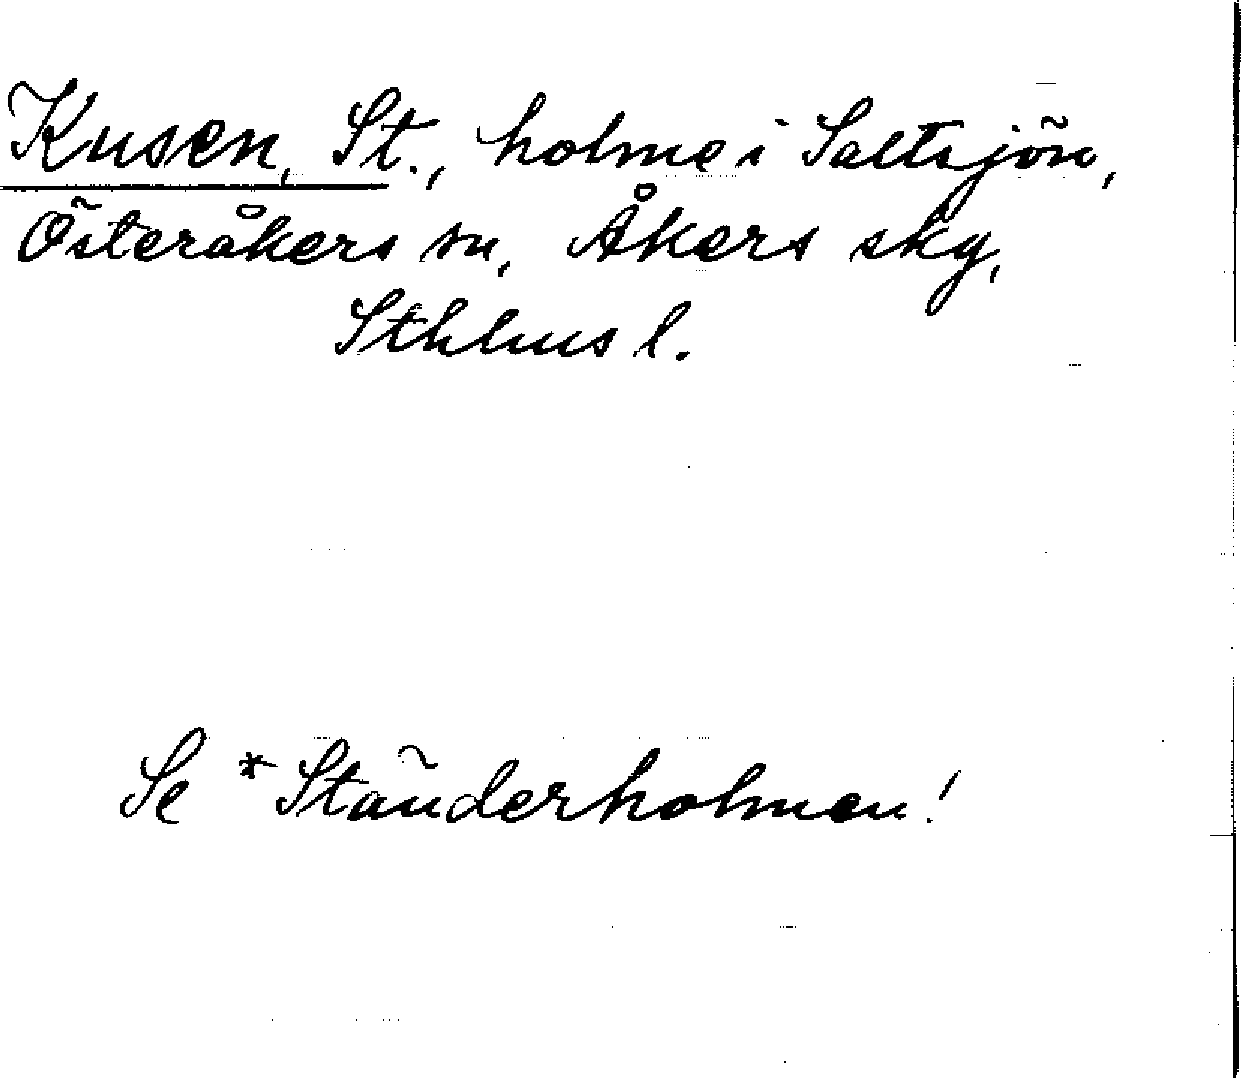 Kusen, St., holme i Saltsjön,
Österåkers sn, Åkers skg,
Sthlms l.
Se *Ständerholmen!